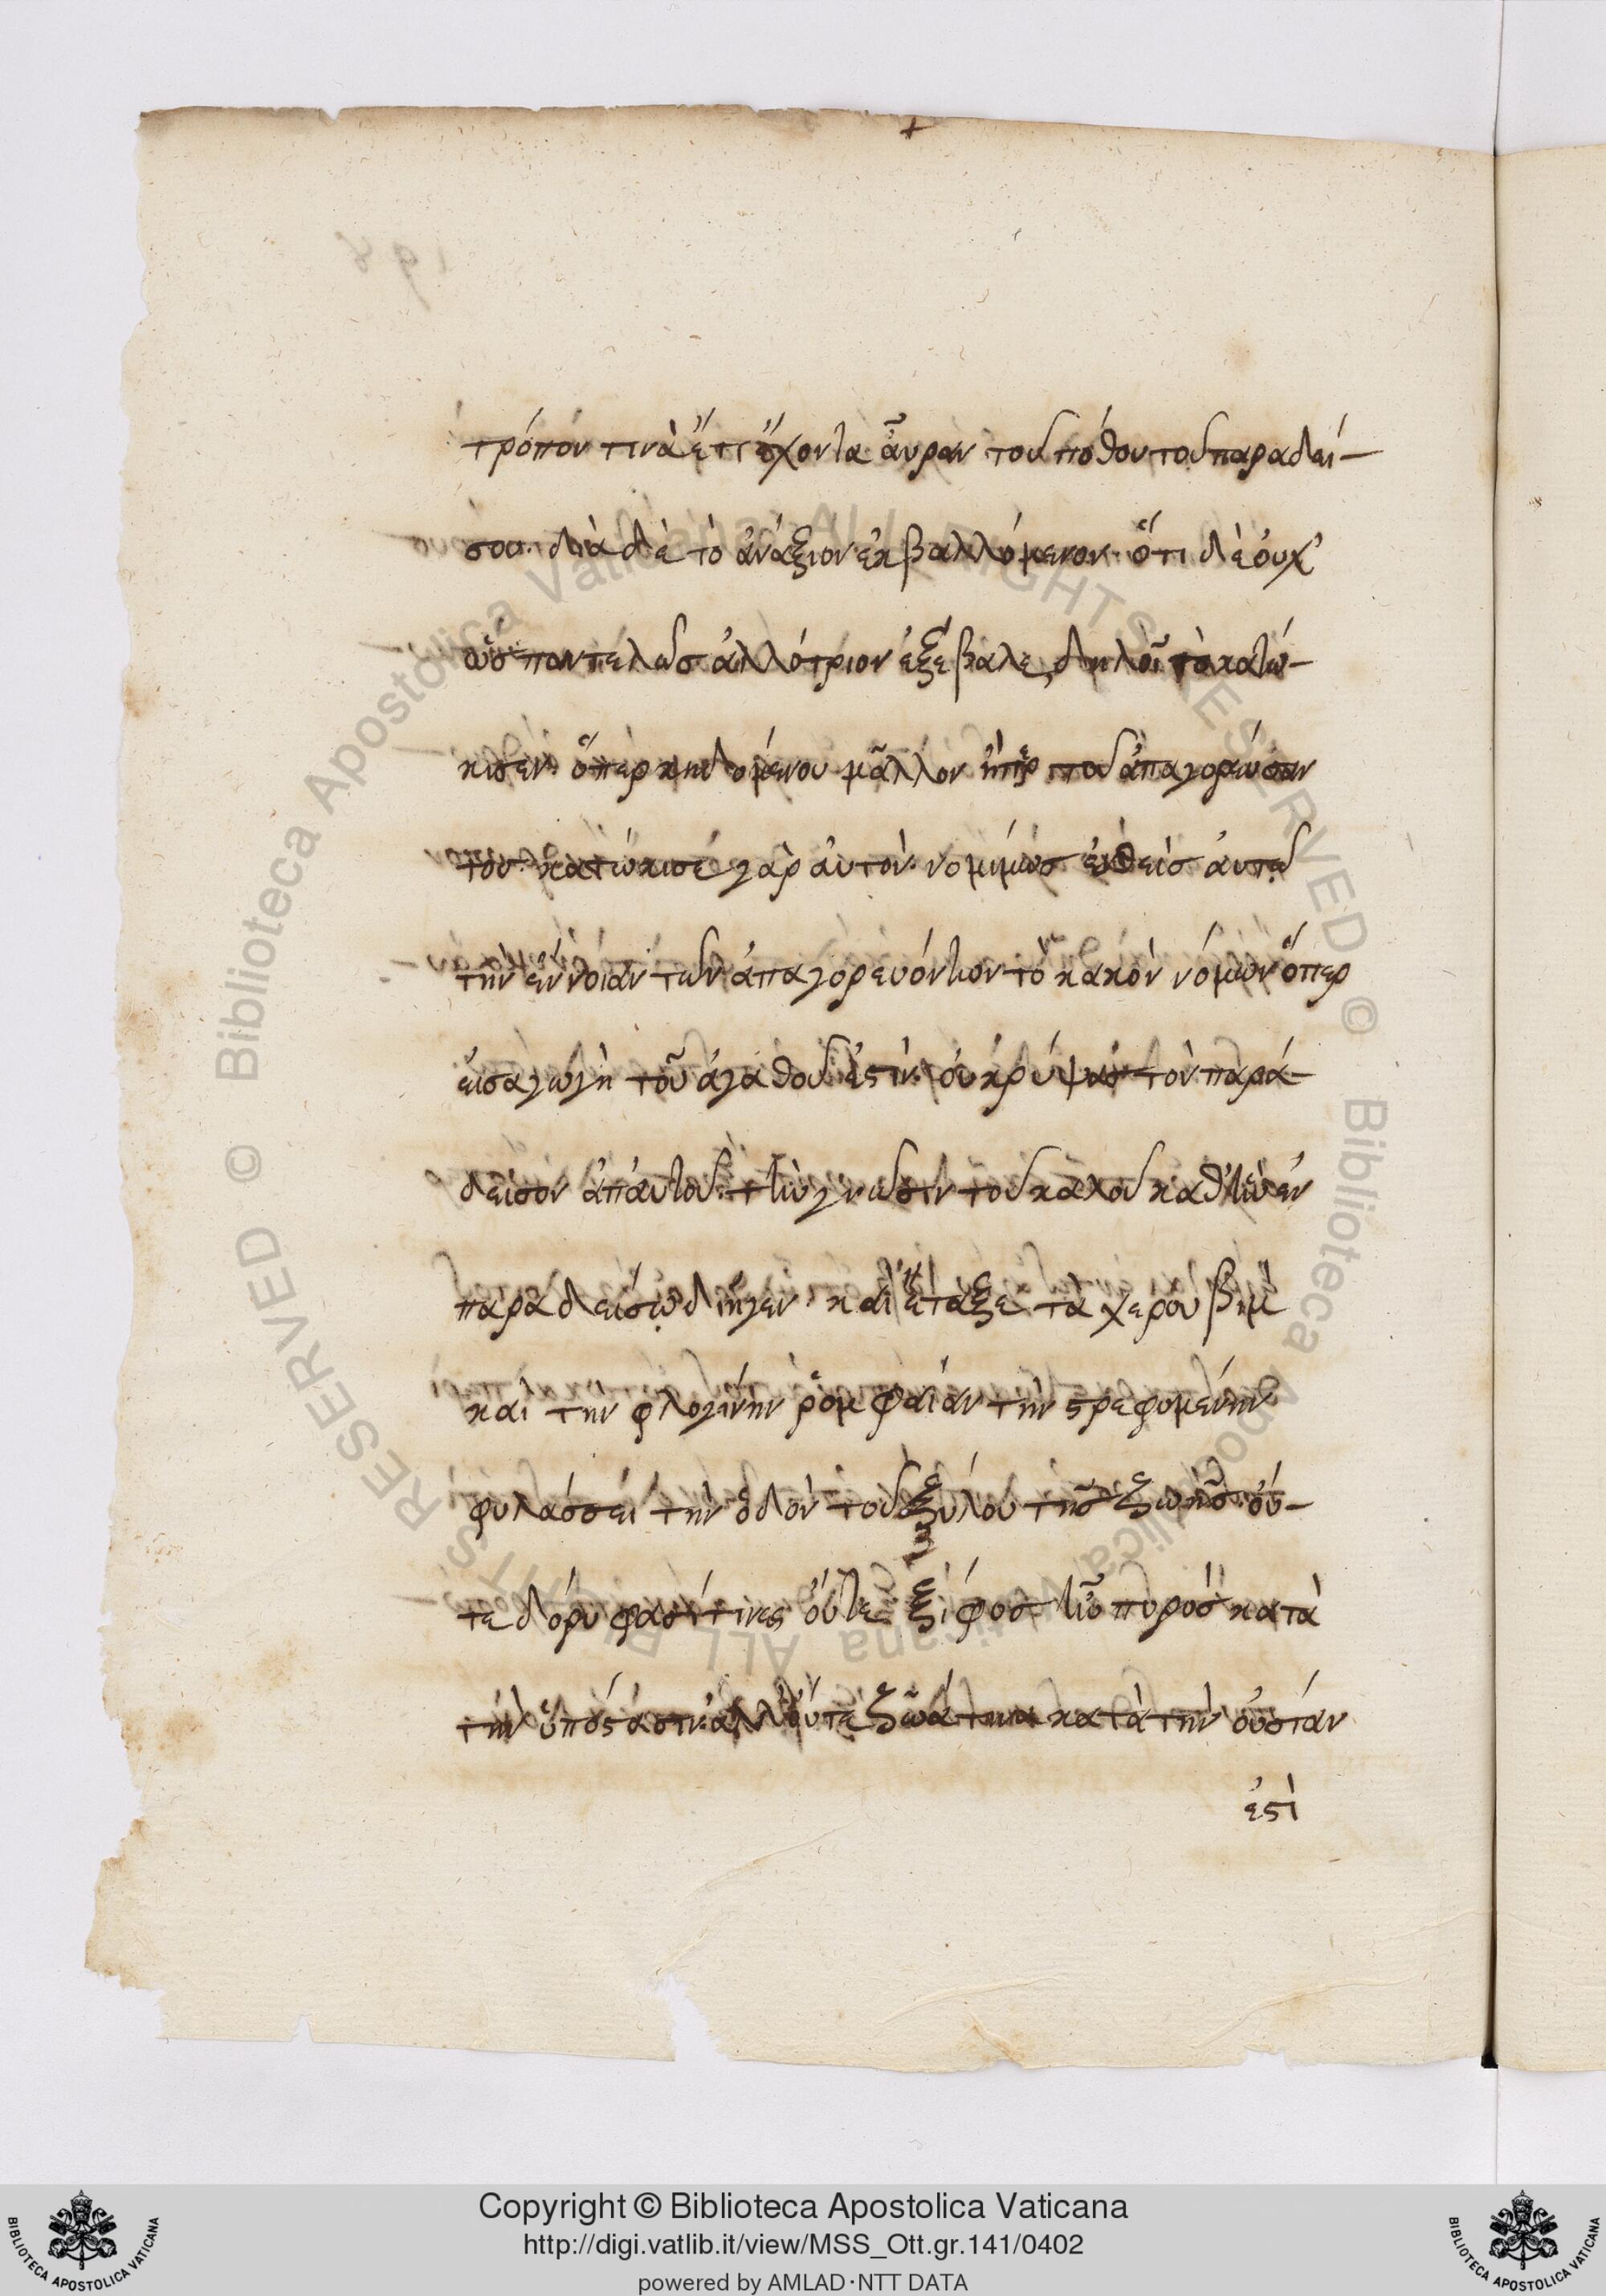 τρόπόν τινὰ ἔτι ἔχοντα ἄυραν τοῦ πόθου τοῦ παραδεί-
σου. διὰ δὲ τὸ ἀνάξιον ἐκβαλλόμενον. ὅτι δὲ ὀυχ'
ὡς παντελῶς ἀλλότριον ἐξέβαλε, δηλοῖ τὸ κατώ-
κισεν· ὅπερ κηδομένου μᾶλλον ἤπερ τοῦ ἀπαγορεύσαν
τος. κατώκισέ γὰρ ἀυτὸν νομίμως ἐνθεὶς ἀυτῷ
τὴν ἔννοιαν τῶν ἀπαγορευόντων τὸ κακὸν νόμων ὅπερ
εἰσαγωγὴ τοῦ ἀγαθοῦ ἐστὶν. ὀυ κρύψας τὸν παρά-
δεισον ἀπ' ἀυτοῦ. τὴν γνῶσιν τοῦ καλοῦ καθ' ἣν ἐν
παραδείσῳ διῆγεν· καὶ ἔταξε τὰ χερουβὶμ
καὶ τὴν φλογίνην ῥομφαίαν τὴν στρεφομένην
φυλάσσει τὴν ὁδὸν τοῦ ξύλου τῆς ζωῆς. ὀύ-
τε δόρυ φασί τινες ὀύτε ξίφος ἦν πυρὸς κατὰ
τὴν ὑπόστασιν. ἀλλ' ὀύτε ζῶά τινα κατὰ τὴν ὀυσίαν
ἐστὶ
Copyright © Biblioteca Apostolica Vaticana
http://digi.vatlib.it/view/MSS_Ott.gr.141/0402
powered by AMLAD·NTT DATA